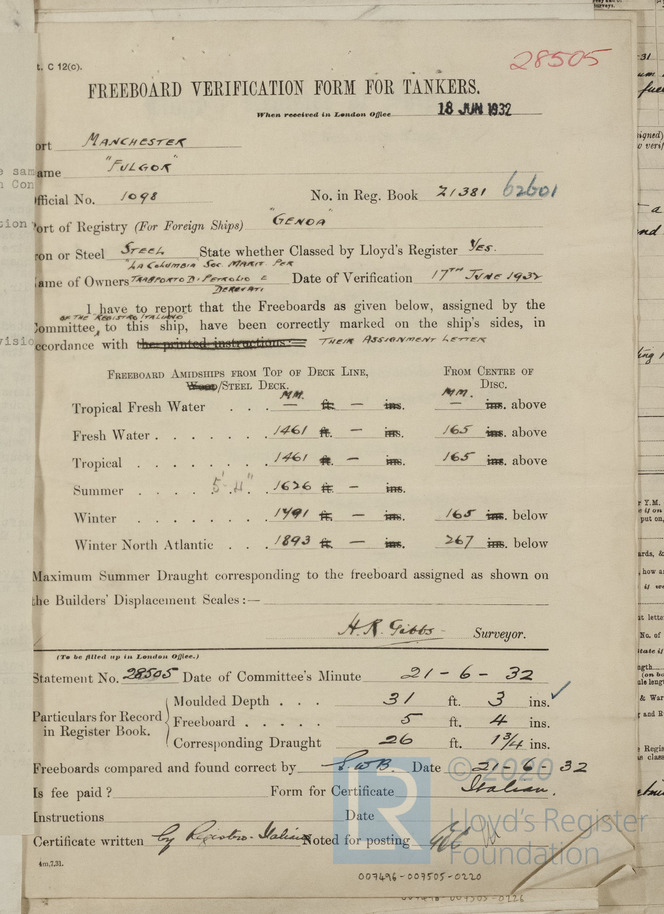 t. C 12(c).
28505
FREEBOARD VERIFICATION FORM FOR TANKERS.
When received in London Office 18 JUN 1932
ort MANCHESTER
ame "FULGOR"
fficial No. 1098 No. in Reg. Book 21381 62601
ort of Registry (For Foreign Ships) "GENOA"
ron or Steel STEEL State whether Classed by Lloyd's Register YES.
"LA COLUMBIA SOC. MARIT. PER
ame of Owners TRASPORTO DI PETROLIO E Date of Verification 17TH JUNE 1932
DERIVATI
I have to report that the Freeboards as given below, assigned by the
OF THE REGISTRO ITALIANO
Committee, to this ship, have been correctly marked on the ship's sides, in
ccordance with the printed instructions THEIR ASSIGNMENT LETTER
FREEBOARD AMIDSHIPS FROM TOP OF DECK LINE, FROM CENTRE OF
Wood/STEEL DECK. DISC.
MM. MM.
Tropical Fresh Water . . . — ft. — ins. — ins. above
Fresh Water . . . . . . 1461 ft. — ins. 165 ins. above
Tropical . . . . . . . 1461 ft. — ins. 165 ins. above
Summer . . . . 5'4" . 1626 ft. — ins.
Winter . . . . . . . 1791 ft. — ins. 165 ins. below
Winter North Atlantic . . . 1893 ft. — ins. 267 ins. below
Maximum Summer Draught corresponding to the freeboard assigned as shown on
the Builders' Displacement Scales :—
H.R. Gibbs Surveyor.
(To be filled up in London Office.)
Statement No. 28505 Date of Committee's Minute 21-6-32
Particulars for Record in Register Book.
Moulded Depth . . . 31 ft. 3 ins. ✓
Freeboard . . . . . 5 ft. 4 ins.
Corresponding Draught 26 ft. 1 3/4 ins.
Freeboards compared and found correct by S.W.B. Date 21-6-32
Is fee paid ? Form for Certificate Italian.
Instructions Date
Certificate written by Registro Italiano Noted for posting
4m,7,31.
© 2020
Lloyd's Register
Foundation
LR
007496-007505-0220